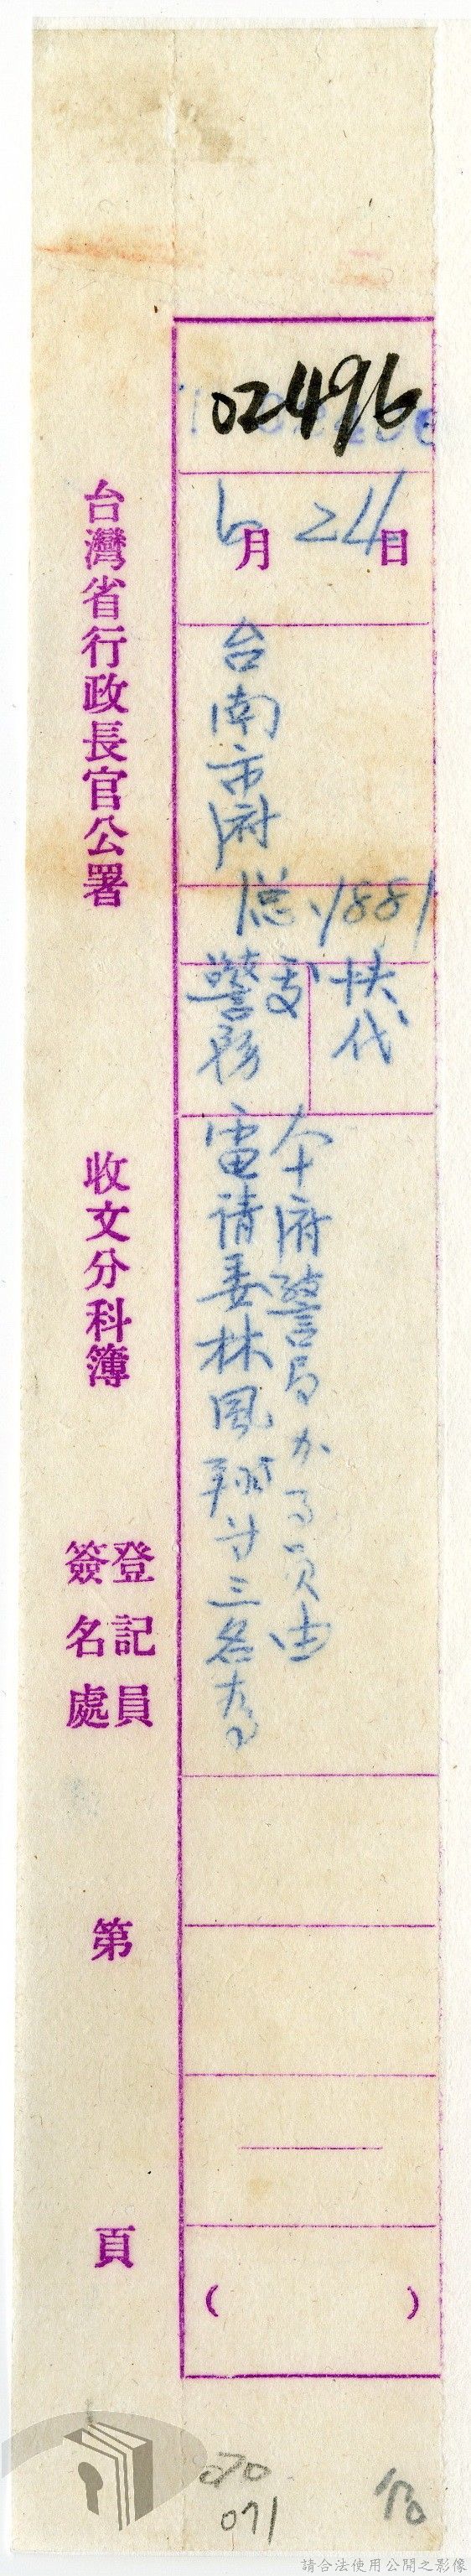 02496
6月24日
台南市府
總 1881
快代
警務處
電請委林風翔等三名為
本府警局办事員由
台灣省行政長官公署
收文分科簿
登記員
簽名處
第
頁
(   )
070
071
請合法使用公開之影像